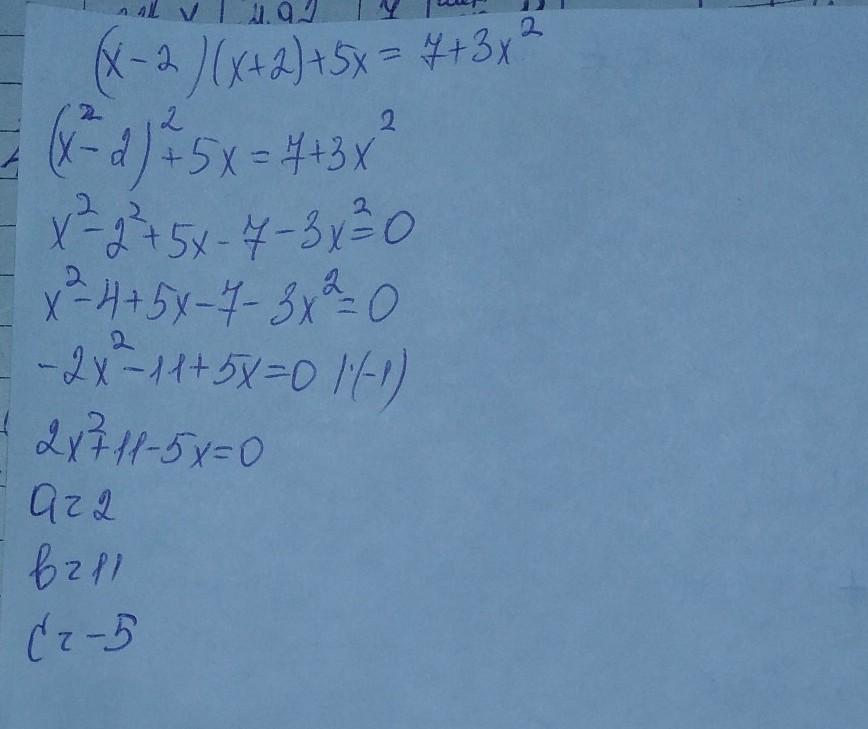 (x-2)(x+2)+5x=7+3x²
(x²-2)²+5x=7+3x²
x²-2²+5x-7-3x²=0
x²-4+5x-7-3x²=0
-2x²-11+5x=0 |·(-1)
2x²+11-5x=0
a=2
b=11
c=-5